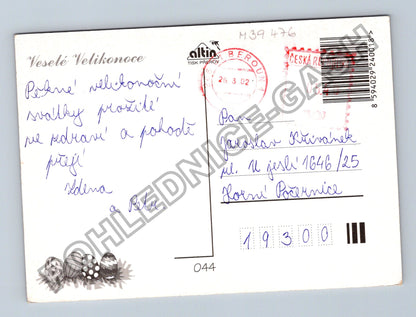 M39 476
Veselé Velikonoce
altin
TISK PŘÍBRAM
BEROUN
26.3.02
ČESKÁ R
8 594029 240018
Pěkné velikonoční
svátky prožité
ve zdraví a pohodě
přejí
Zdena
a Petr
Pan
Jaroslav Křivánek
ul. U jeslí 1646/25
Horní Počernice
19300
044
POHLEDNICE-GASH